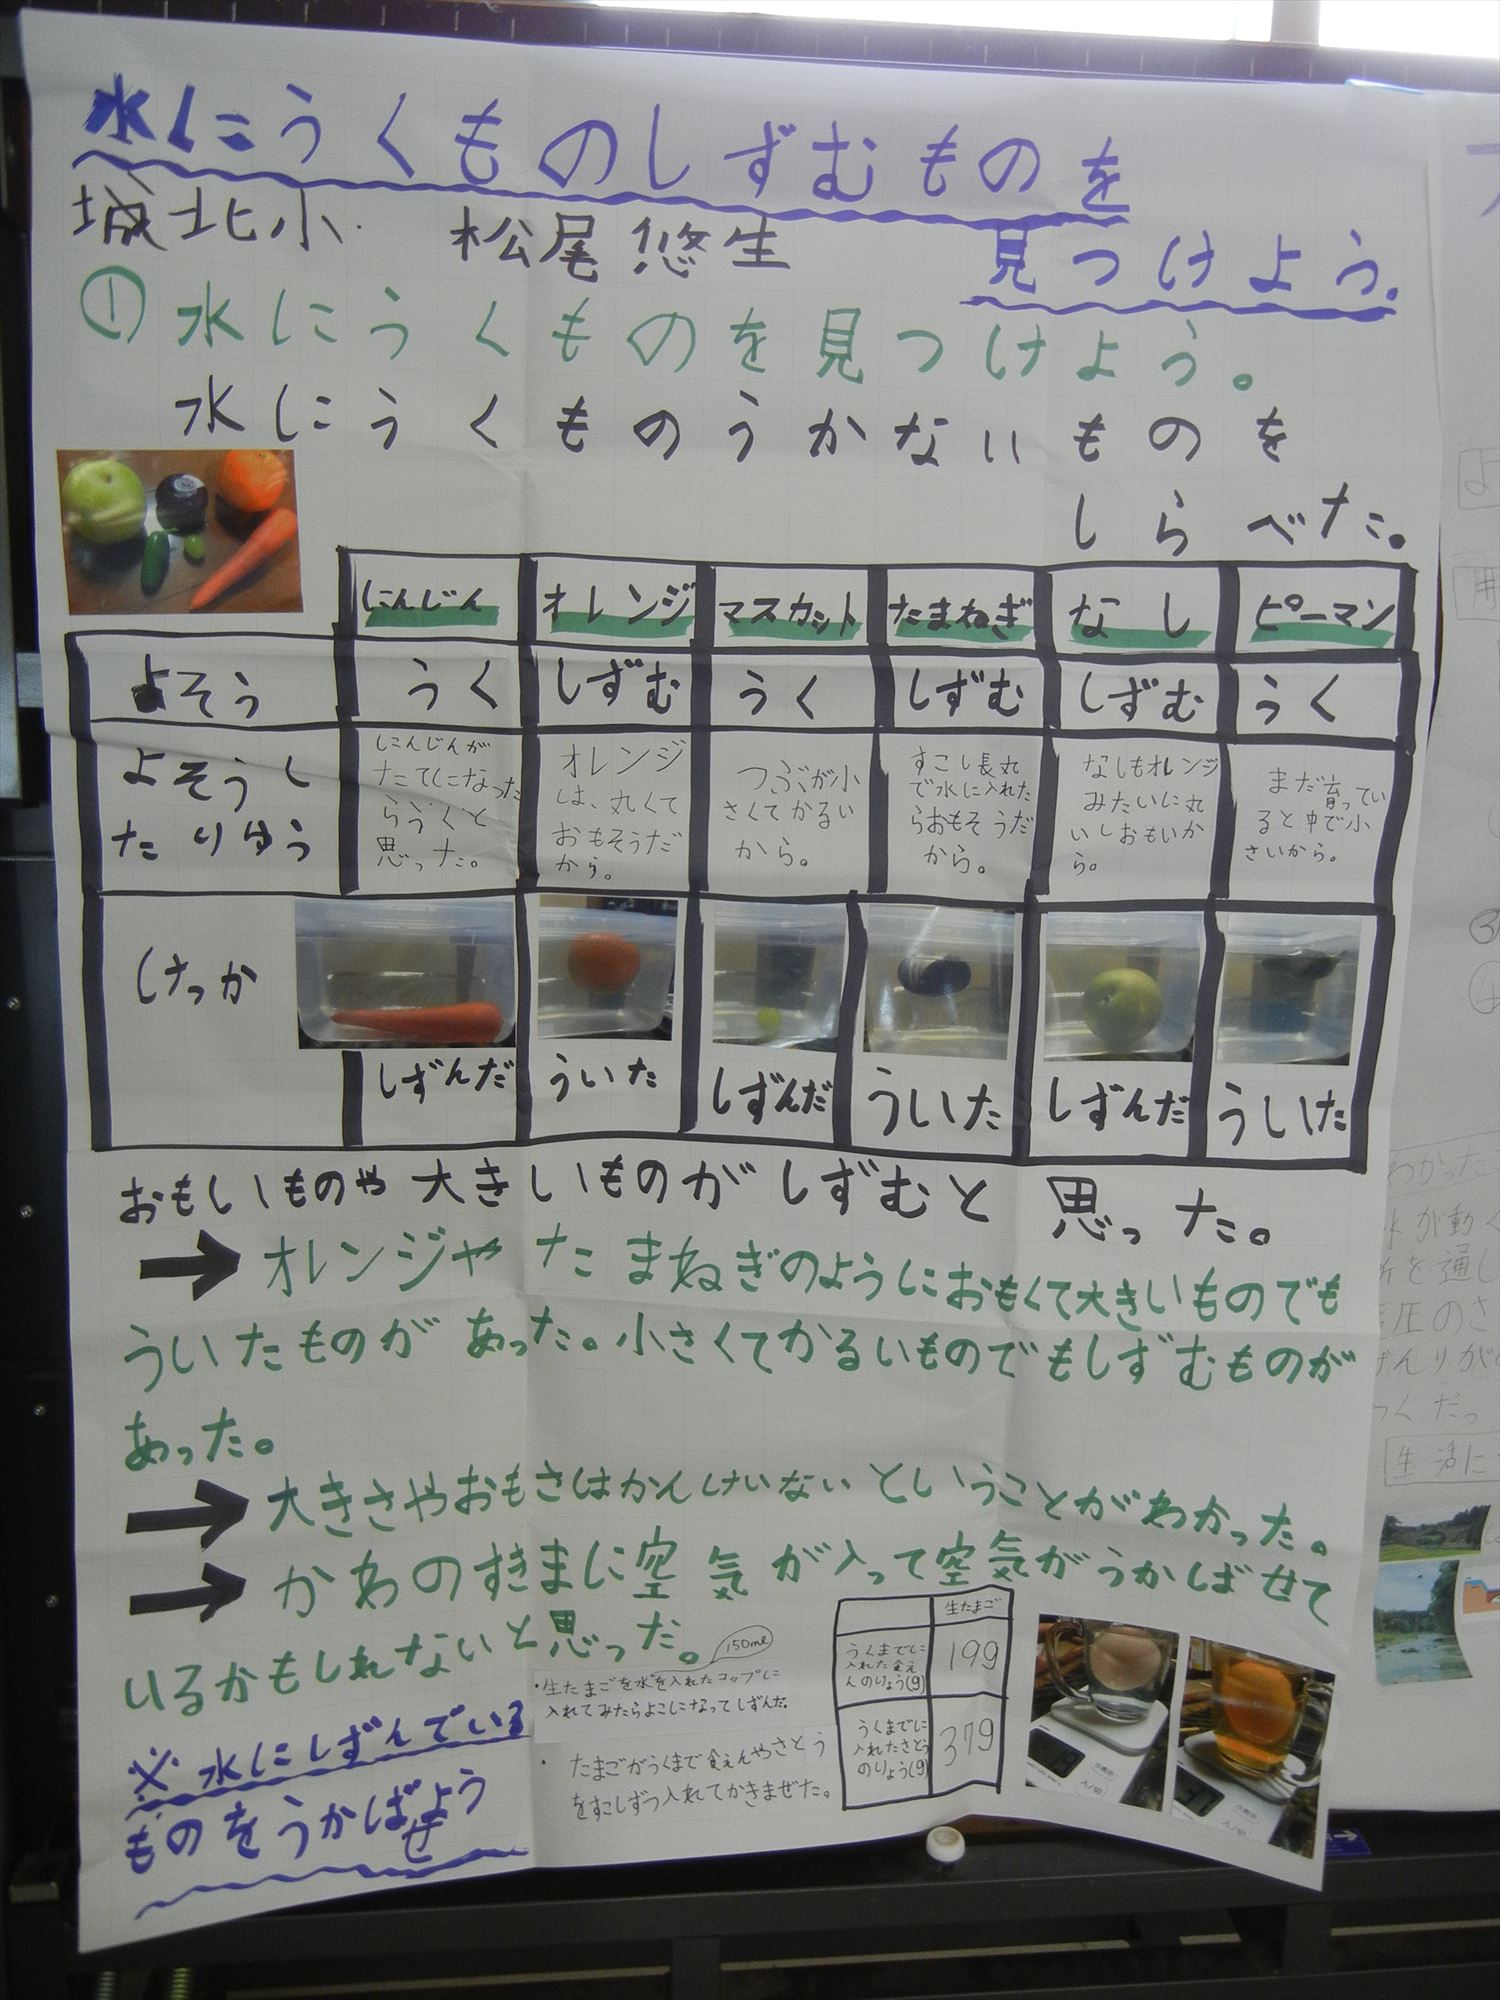 水にうくものしずむものを
見つけよう。
城北小 松尾悠生
① 水にうくものを見つけよう。
水にうくものうかないものを
しらべた。
にんじん オレンジ マスカット たまねぎ なし ピーマン
よそう うく しずむ うく しずむ しずむ うく
よそうし
たりゆう
にんじんが
たてになった
らうくと
思った。
オレンジ
は、丸くて
おもそうだ
から。
つぶが小
さくてかるい
から。
すこし長丸
で水に入れた
らおもそうだ
から。
なしもオレンジ
みたいに丸
いしおもいか
ら。
まだ育ってい
ると中で小
さいから。
けっか
しずんだ ういた しずんだ ういた しずんだ ういた
おもいものや大きいものがしずむと思った。
→オレンジやたまねぎのようにおもくて大きいものでも
ういたものがあった。小さくてかるいものでもしずむものが
あった。
→大きさやおもさはかんけいないということがわかった。
→かわのすきまに空気が入って空気がうかばせて
いるかもしれないと思った。
※水にしずんでいる
ものをうかばせよう
150ml
・生たまごを水を入れたコップに
入れてみたらよこになってしずんだ。
・たまごがうくまで食えんやさとう
をすこしずつ入れてかきまぜた。
生たまご
うくまでに
入れた食え
んのりょう(g)
19g
うくまでに
入れたさとう
のりょう(g)
37g
わかった
水が動く
を通し
圧のさ
生活に